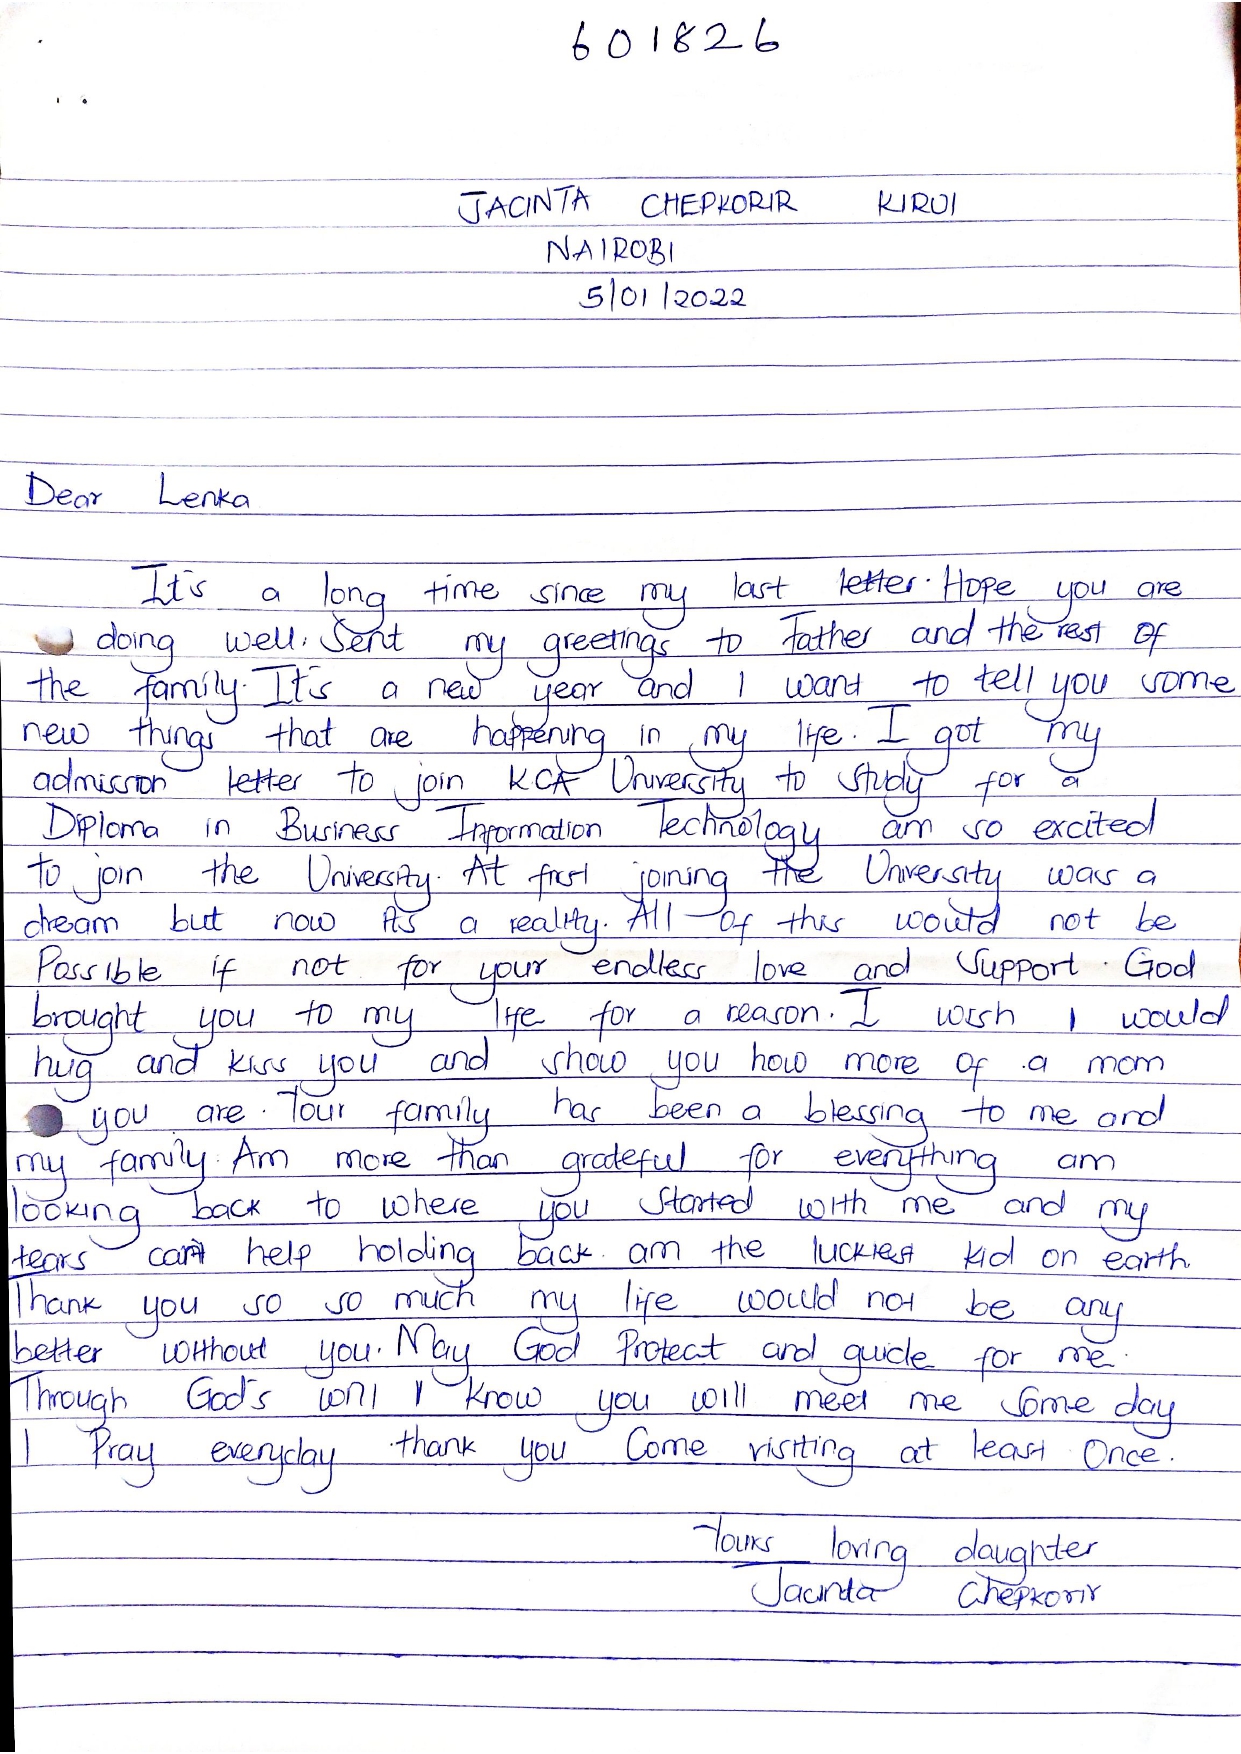 601826
JACINTA CHEPKORIR KIRUI
NAIROBI
5/01/2022
Dear Lenka
It's a long time since my last letter. Hope you are
doing well. Sent my greetings to Father and the rest of
the family. It's a new year and I want to tell you some
new things that are happening in my life. I got my
admission letter to join KCA University to study for a
Diploma in Business Information Technology am so excited
to join the University. At first joining the University was a
dream but now its a reality. All of this would not be
Possible if not for your endless love and Support. God
brought you to my life for a reason. I wish I would
hug and kiss you and show you how more of a mom
you are. Your family has been a blessing to me and
my family. Am more than grateful for everything am
looking back to where you started with me and my
tears can't help holding back. am the luckiest kid on earth.
Thank you so so much my life would not be any
better without you. May God Protect and guide for me.
Through God's will I know you will meet me some day
I Pray everyday thank you Come visiting at least Once.
Yours loving daughter
Jacinta Chepkorir